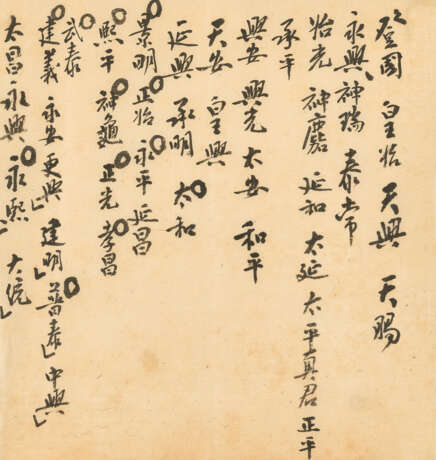 登國 皇始 天興 天賜
永興 神瑞 泰常
始光 神䴥 延和 太延 太平真君 正平
承平
興安 興光 太安 和平
天安 皇興
延興 承明 太和
景明 正始 永平 延昌
熙平 神龜 正光 孝昌
武泰
建義 永安 更興」 建明 普泰」 中興」
太昌 永興 永熙」 大統」